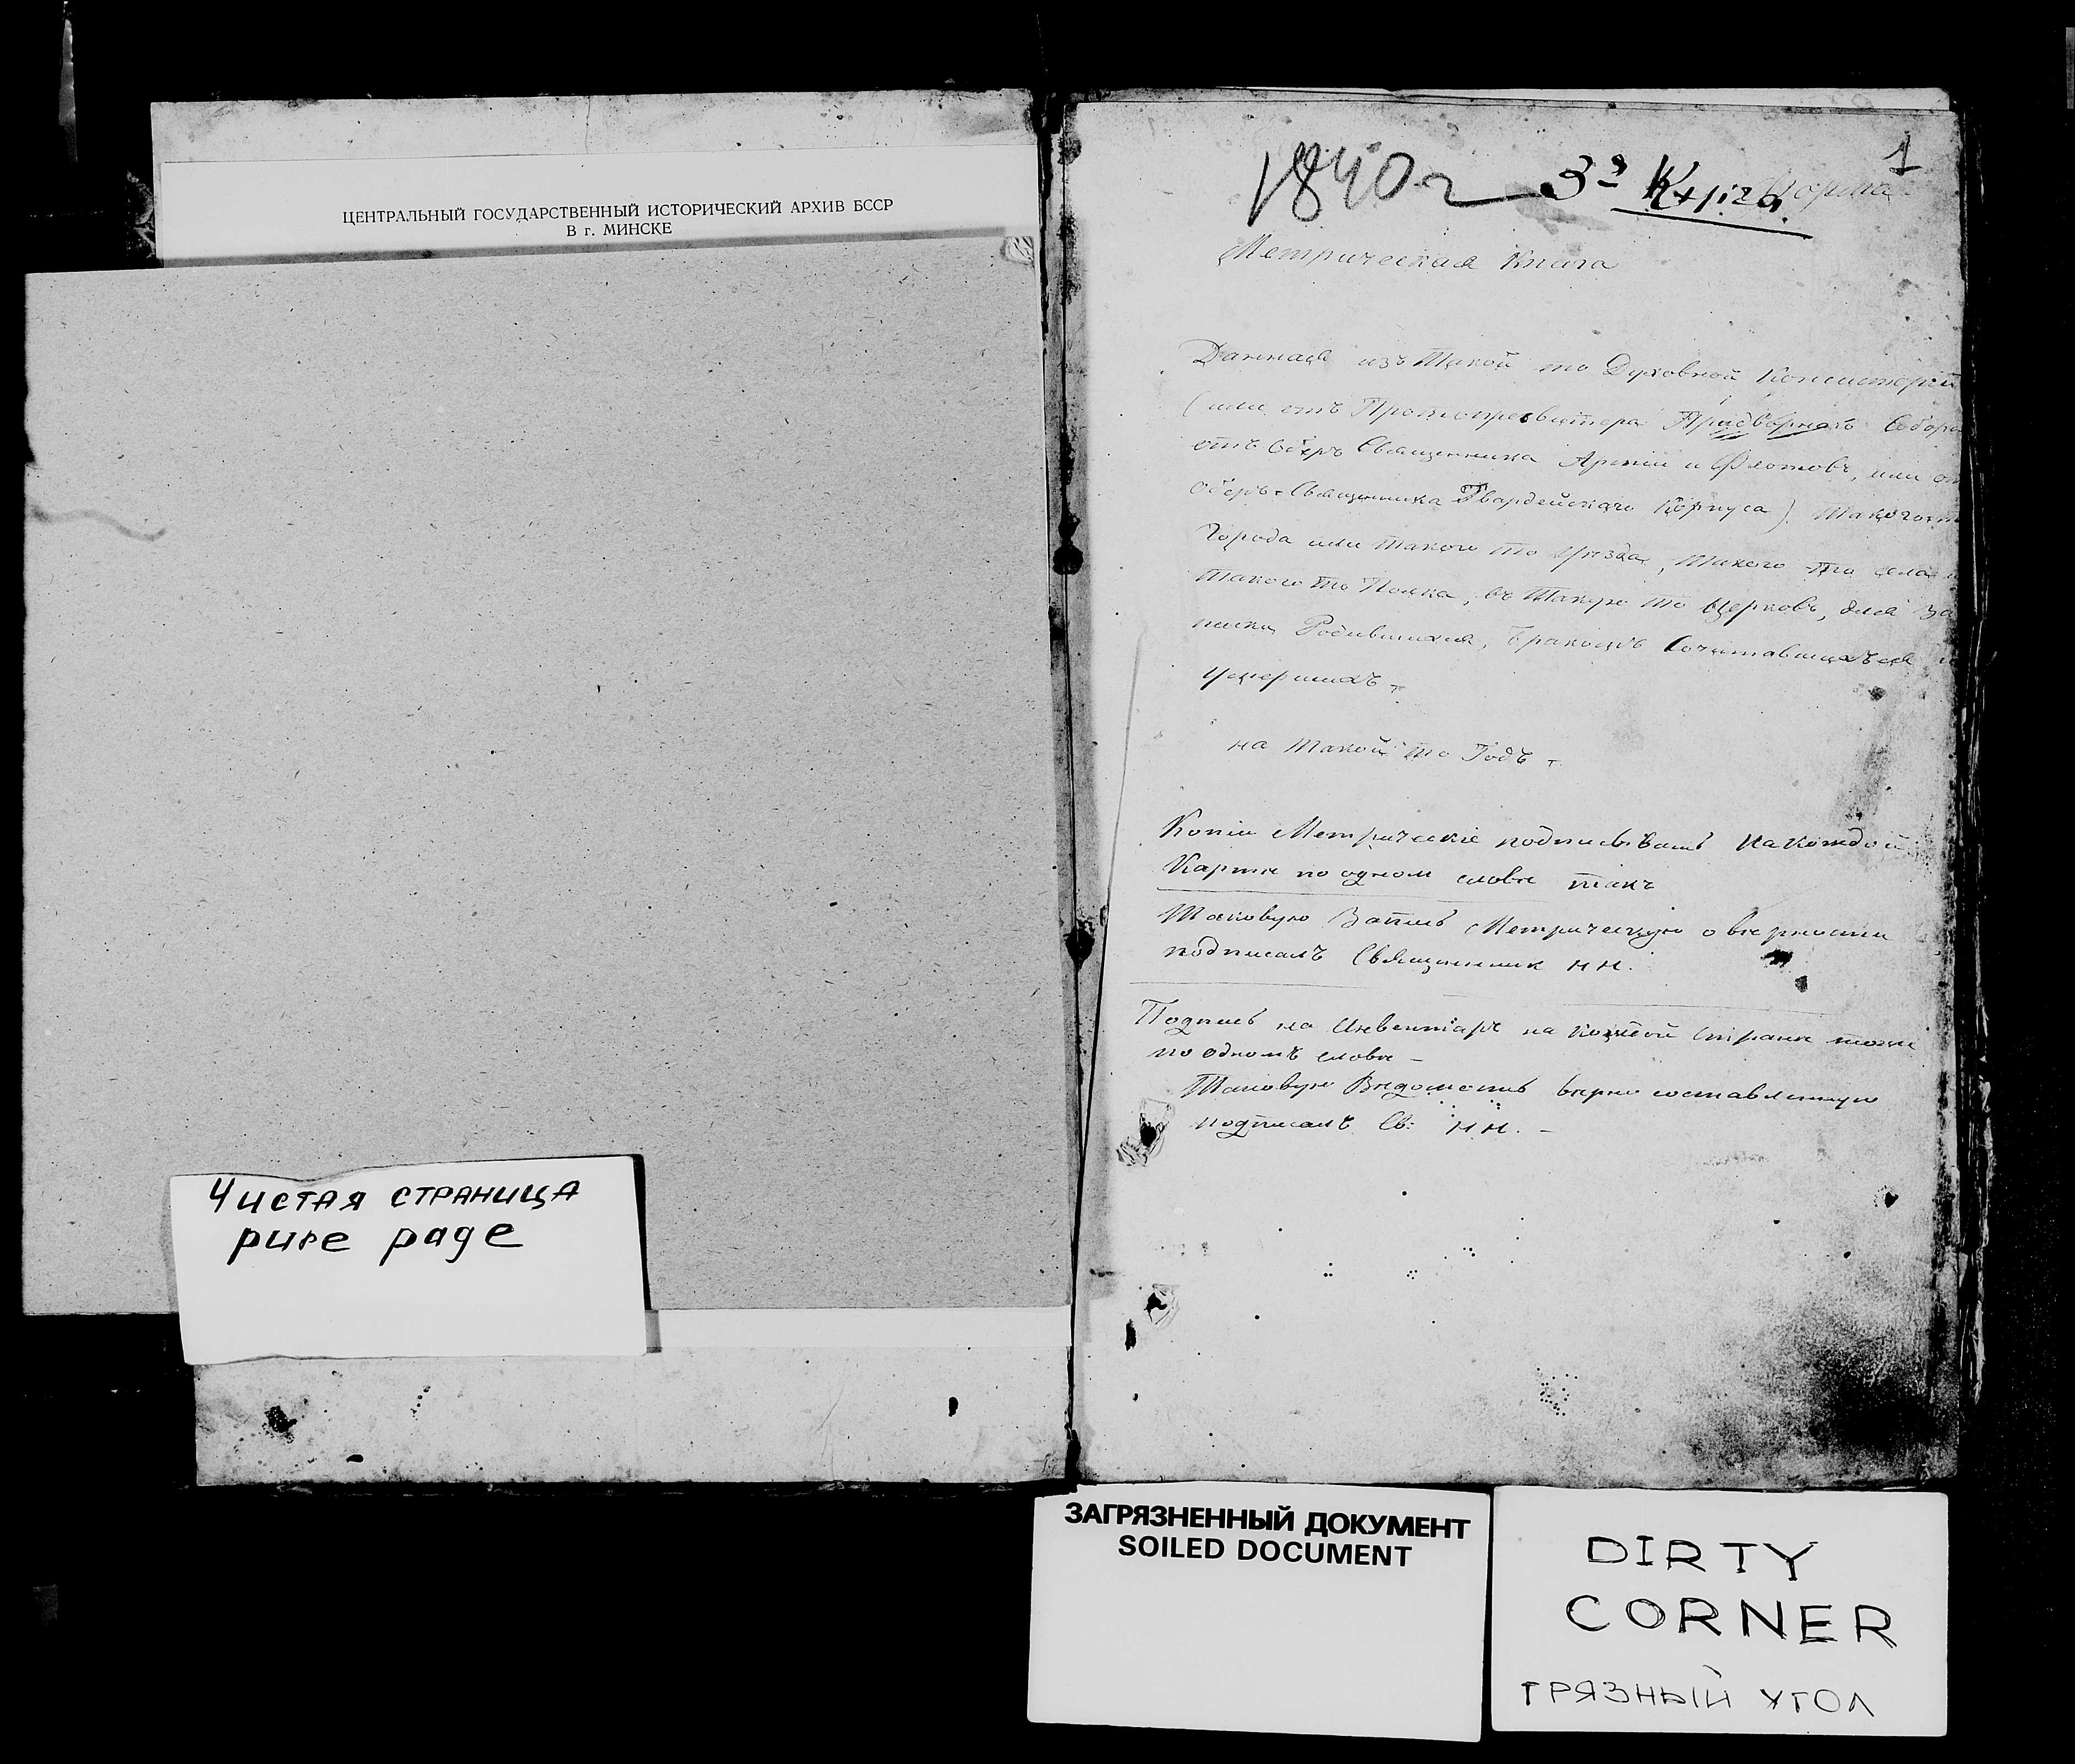 ЦЕНТРАЛЬНЫЙ ГОСУДАРСТВЕННЫЙ ИСТОРИЧЕСКИЙ АРХИВ БССР
В г. МИНСКЕ
Чистая страница
pure page
1
1840 г 3я Книга. Форма
Метрическая Книга
Данная изъ Такой то Духовной Консисторіи
(или отъ Протопресвитера Придворнаго Собора
отъ Оберъ Священника Арміи и Флотовъ, или от
Оберъ-Священника Гвардейскаго Корпуса). Такого т
Города или такого то уезда, такого то села и
такого то Полка, въ Такую то Церковь, для за
писки Родившихся, Бракомъ Сочетавшихъся и
умершихъ
на такой то Годъ
Копіи Метрическіе подписывать на каждой
Карте по одном слове такъ
Таковую Запись Метрическую о верности
подписалъ Священник Н Н.
Подпись на Инвентаре на каждой стране тоже
по одномъ слове –
Таковую Ведомость верно составленную
подписалъ Св: Н Н. –
ЗАГРЯЗНЕННЫЙ ДОКУМЕНТ
SOILED DOCUMENT
DIRTY
CORNER
ГРЯЗНЫЙ УГОЛ